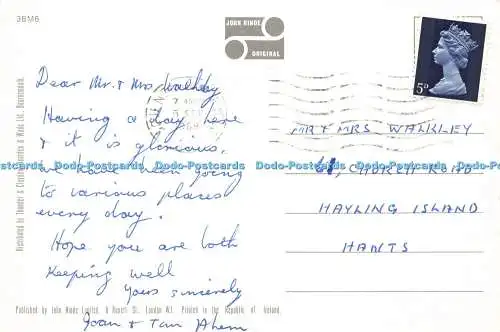 38M6
JOHN HINDE
ORIGINAL
5D
Dear Mr. & Mrs Walkley
Having a day here
& it is glorious.
we have been going
to various places
every day.
Hope you are both
keeping well
yours sincerely
Joan & Tam
MR & MRS WALKLEY
CHURCH ROAD
HAYLING ISLAND
HANTS
Dodo-Postcards Dodo-Postcards Dodo-Postcards Dodo-Postcards Dodo-Postcards Dodo-Postcards
Distributed by Thunder & Clayden Ltd., Bournemouth.
Published by John Hinde Limited, London W.1. Printed in the Republic of Ireland.